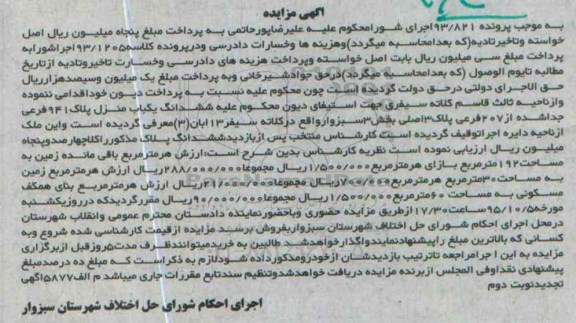 آگهی مزایده
به موجب پرونده ۹۳/۸۲۱اجرای شورامحکوم علیه علیرضاپورحاتمی به پرداخت مبلغ پنجاه میلیون ریال اصل
خواسته وتاخیرتادیه(که بعدامحاسبه میگردد)وهزینه ها وخسارات دادرسی ودرپرونده کلاسه۹۳/۱۲۰۵اجراشورابه
پرداخت مبلغ سی میلیون ریال بابت اصل خواسته وپرداخت هزینه های دادرسی وخسارت تاخیروتادیه ازتاریخ
مطالبه تایوم الوصول (که بعدامحاسبه میگردد)درحق جوادشیرخانی وبه پرداخت مبلغ یک میلیون وسیصدهزارریال
حق الاجرای دولتی درحق دولت گردیده است چون محکوم علیه نسبت به پرداخت دیون خوداقدامی ننموده
وازناحیه ثالث قاسم کلاته سیفری جهت استیفای دیون محکوم علیه ششدانگ یکباب منزل پلاک۹۴۱فرعی
جداشده از۲۰۷فرعی پلاک۳اصلی بخش۳سبزوارواقع درکلاته سیفر۱۳آبان(۳)معرفی گردیده است واین ملک
ازناحیه دایره اجراتوقیف گردیده است کارشناس منتخب پس ازبازدیدششدانگ پلاک مذکورراکلاچهارصدوپنجاه
میلیون ریال ارزیابی نموده است نظریه کارشناس بدین شرح است:ارزش هرمترمربع باقی مانده زمین به
مساحت۱۹۲مترمربع بازای هرمترمربع۱/۵۰۰/۰۰۰ریال مجموعا۲۸۸/۰۰۰/۰۰۰ریال ارزش هرمترمربع زمین
به مساحت۳۰مترمربع هرمترمربع۷۰۰/۰۰۰ریال مجموعا۲۱/۰۰۰/۰۰۰ریال ارزش هرمترمربع بنای همکف
مسکونی به مساحت ۶۰مترمربع۱/۵۰۰/۰۰۰ریال مجموعا۹۰/۰۰۰/۰۰۰ریال مقررگردیدکه درروزیکشنبه
مورخه۹۵/۵/۱۰ساعت۱۷/۳۰ازطریق مزایده حضوری وباحضورنماینده دادستان محترم عمومی وانقلاب شهرستان
درمحل اجرای احکام شورای حل اختلاف شهرستان سبزواربفروش برسد مزایده ازقیمت کارشناسی شده شروع وبه
کسانی که بالاترین مبلغ راپیشنهادنمایندواگذارخواهدشد طالبین به خریدمیتوانندظرف مدت۵روزقبل ازبرگزاری
مزایده به این اجرامراجعه تاترتیب بازدیدشان ازخودرومذکورداده شودلازم به ذکراست که مبلغ ده درصدمبلغ
پیشنهادی نقداوفی المجلس ازبرنده مزایده دریافت خواهدشدوتنظیم سندتابع مقررات جاری میباشد م الف۵۸۷۷آگهی
تجدیدنوبت دوم
اجرای احکام شورای حل اختلاف شهرستان سبزوار